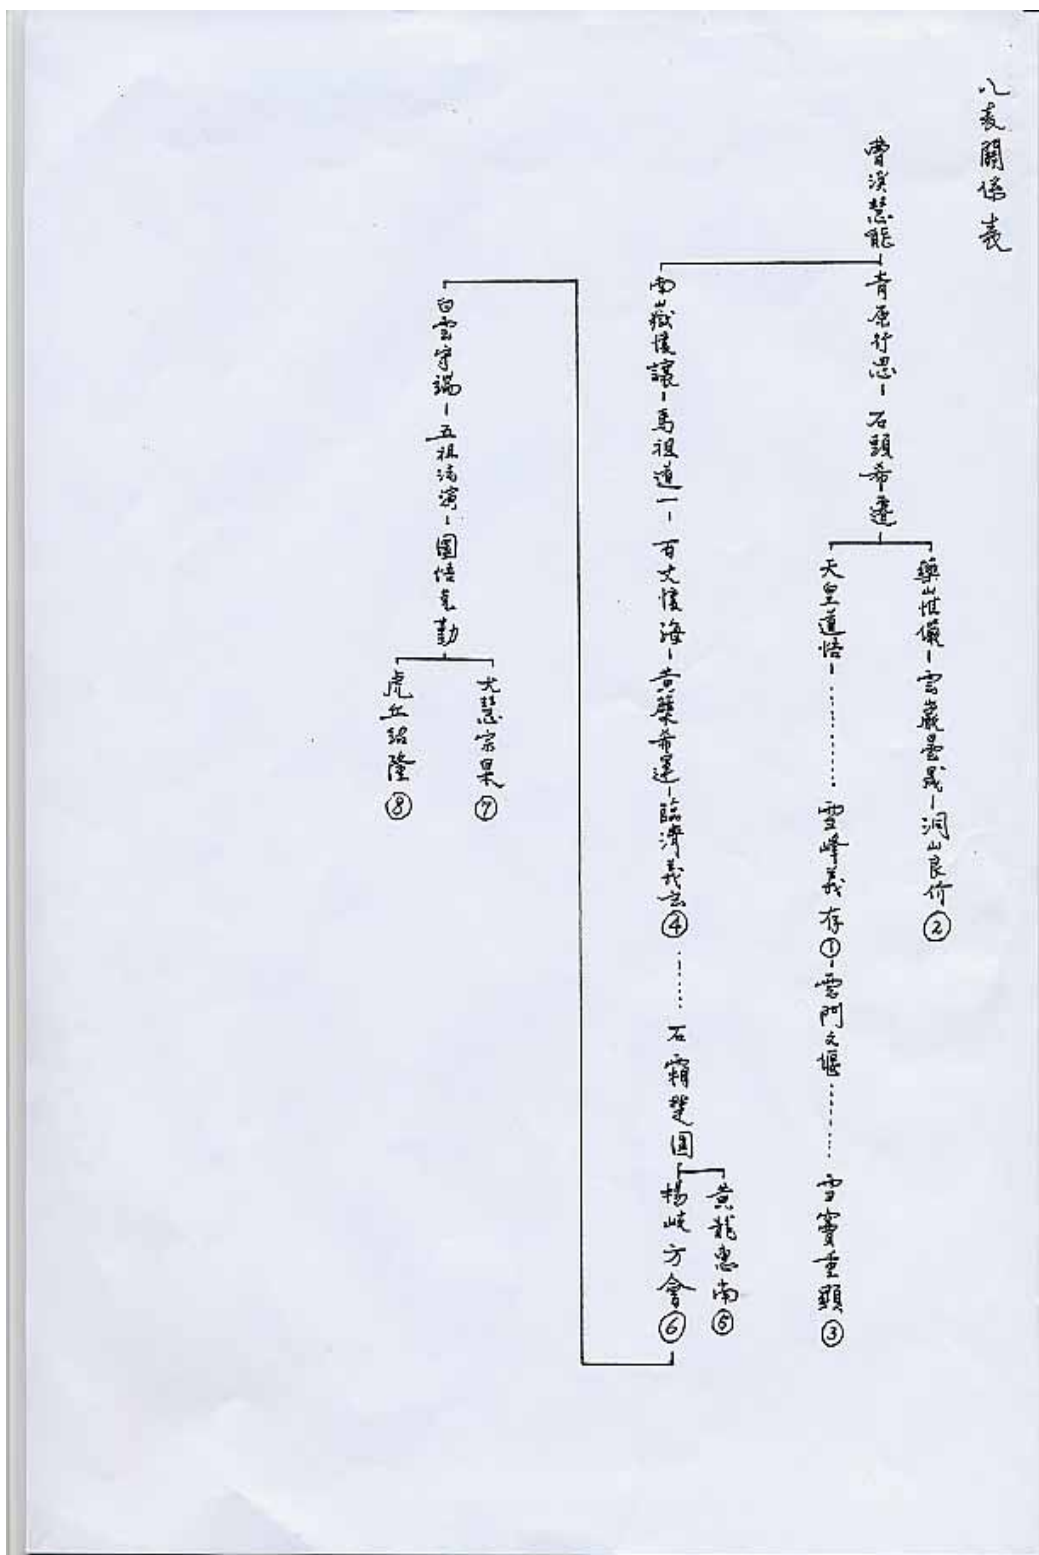 八表關係表
曹溪慧能
青原行思-石頭希遷
藥山惟儼-雲巖曇晟-洞山良价②
天皇道悟-………雪峰義存①-雲門文堰……雪竇重顯③
南嶽懷讓-馬祖道一-百丈懷海-黃蘗希運-臨濟義玄④……石霜楚圓
黃龍惠南⑤
楊岐方會⑥
白雲守端-五祖法演-圜悟克勤
大慧宗杲⑦
虎丘紹隆⑧